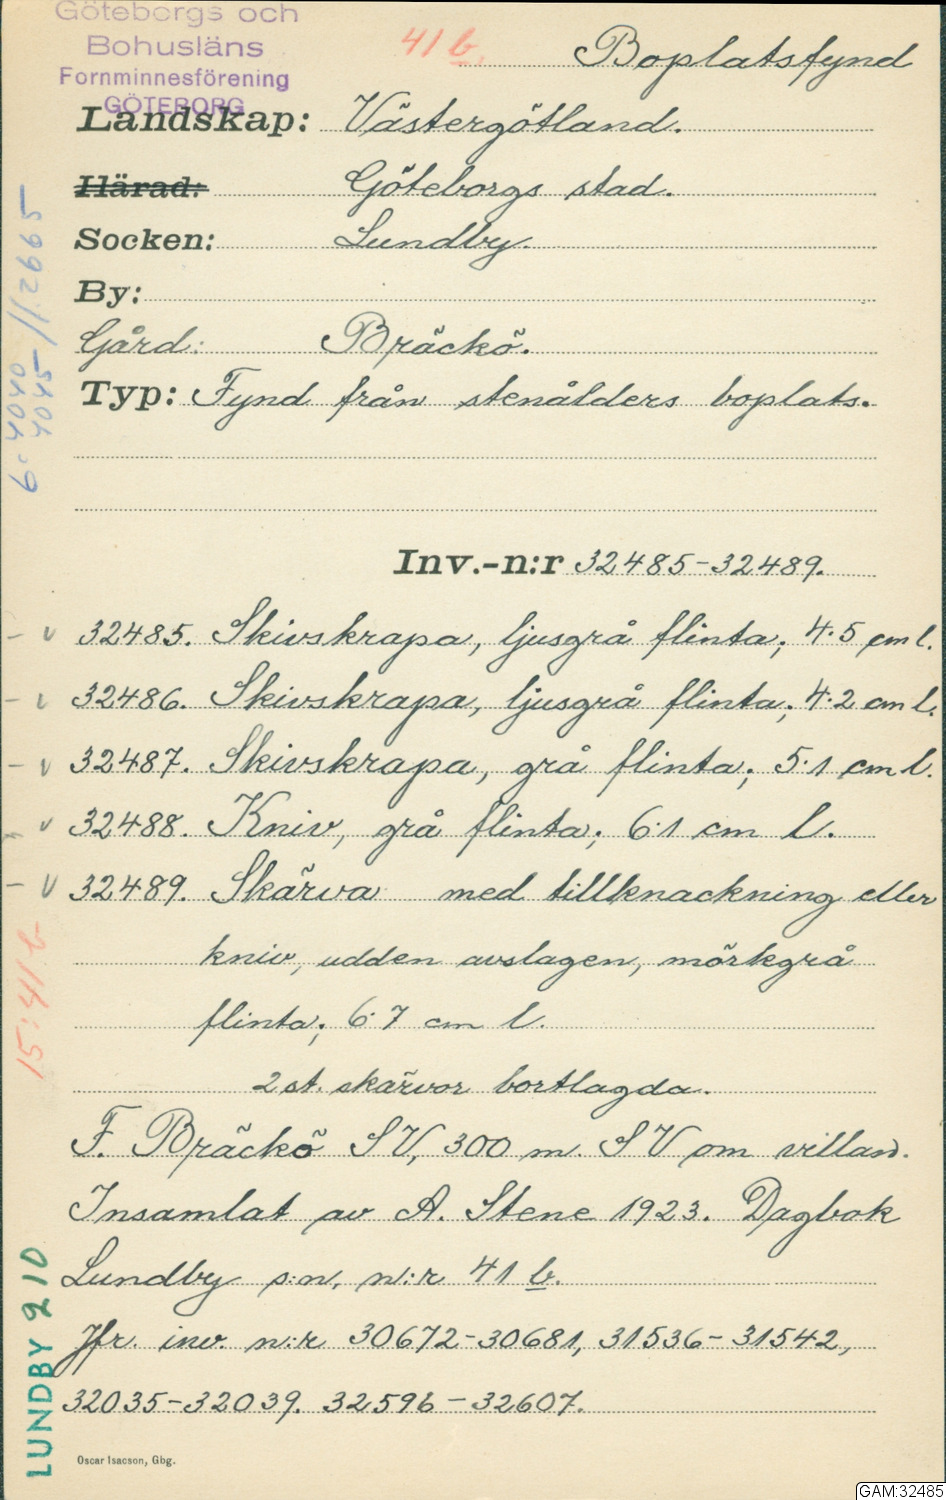 Göteborgs och
Bohusläns
Fornminnesförening
GÖTEBORG
41 b.
Boplatsfynd
Landskap: Västergötland.
Härad: Göteborgs stad.
Socken: Lundby.
By:
Gård: Bräckö.
Typ: Fynd från stenålders boplats.
Inv.-n:r 32485-32489.
- v 32485. Skivskrapa, ljusgrå flinta; 4·5 cm l.
- v 32486. Skivskrapa, ljusgrå flinta; 4·2 cm l.
- v 32487. Skivskrapa, grå flinta; 5·1 cm l.
- v 32488. Kniv, grå flinta; 6·1 cm l.
- v 32489. Skärva med tillknackning eller
kniv, udden avslagen, mörkgrå
flinta; 6·7 cm l.
2 st. skärvor bortlagda.
F. Bräckö SV, 300 m. SV om villan.
Insamlat av A. Stene 1923. Dagbok
Lundby s:n, n:r 41 b.
Jfr. inv. n:r 30672-30681, 31536-31542,
32035-32039. 32596-32607.
6:4040 // 2665
4045
15:41 b
LUNDBY 210
Oscar Isacson, Gbg.
GAM:32485